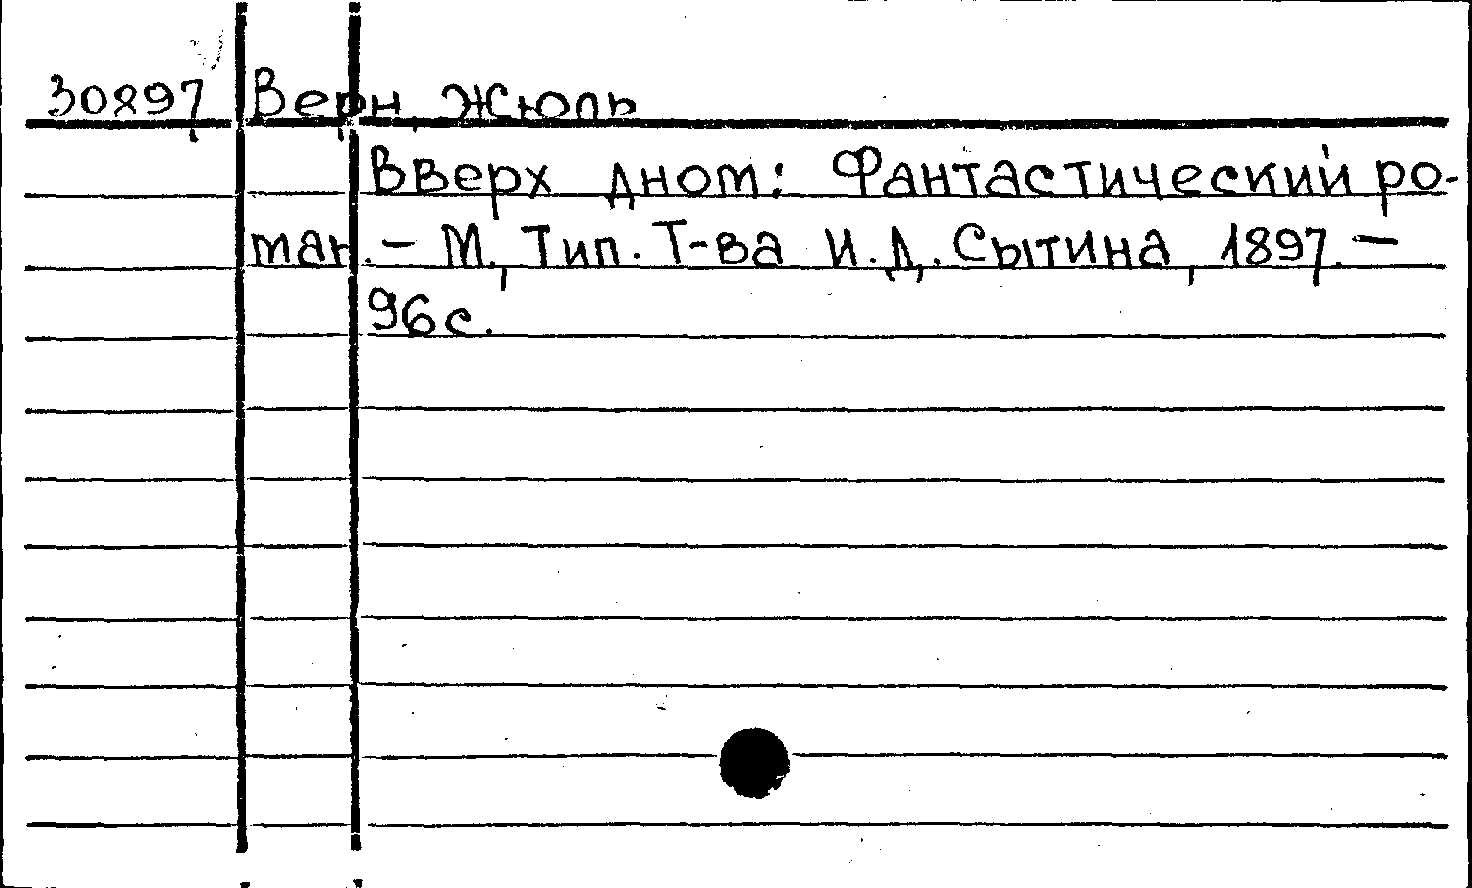 30897 Верн, Жюль
Вверх дном: Фантастический ро-
ман. – М., Тип. Т-ва И.Д. Сытина, 1897. –
96 с.